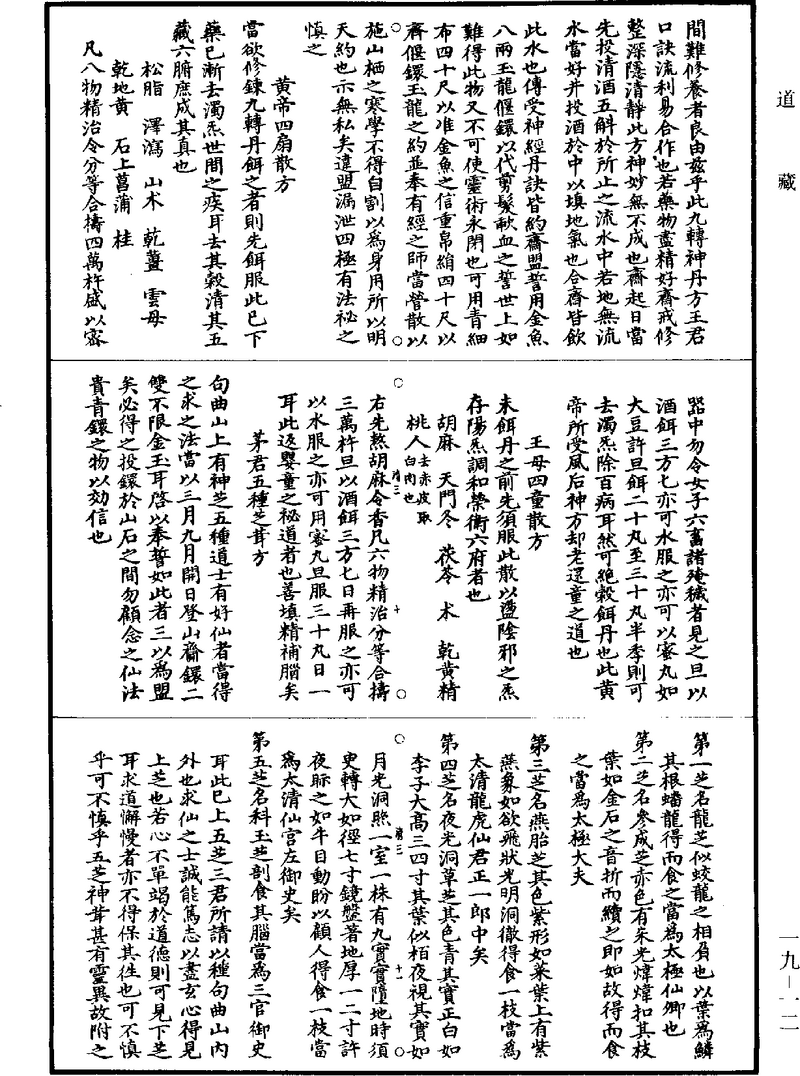 道藏
間難修養者良由茲乎此九轉神丹方王君
口訣流利易合作也若藥物盡精好齋戒修
整深隱清靜此方神妙無不成也齋起日當
先投清酒五斛於所止之流水中若地無流
水當好井投酒於中以填地氣也合齋皆飲
此水也傳受神經丹訣皆約齋盟誓用金魚
八兩玉龍偃鐶以代剪髮歃血之誓世上如
難得此物又不可使靈術永閉也可用青細
布四十尺以准金魚之信重帛絹四十尺以
齊偃鐶玉龍之約並奉有經之師當營散以
施山栖之寒學不得自割以爲身用所以明
天約也示無私矣違盟漏泄四極有法祕之
慎之
黄帝四扇散方
當欲修鍊九轉丹餌之者則先餌服此已下
藥已漸去濁炁世間之疾耳去其穀清其五
藏六腑庶成其真也
松脂 澤瀉 山术 乾薑 雲母
乾地黄 石上菖蒲 桂
凡八物精治令分等合擣四萬杵盛以密
器中勿令女子六畜諸殗穢者見之旦以
酒餌三方七亦可水服之亦可以蜜丸如
大豆許旦餌二十丸至三十丸半季則可
去濁炁除百病耳然可絶穀餌丹也此黄
帝所受風后神方却老還童之道也
王母四童散方
未餌丹之前先須服此散以盪陰邪之炁
存陽炁調和榮衛六府者也
胡麻 天門冬 茯苓 术 乾黄精
桃人去赤皮取白肉也
右先熬胡麻令香凡六物精治分等合擣
三萬杵旦以酒餌三方七日再服之亦可
以水服之亦可用蜜丸旦服三十丸日一
耳此返嬰童之祕道者也善填精補腦矣
茅君五種芝茸方
句曲山上有神芝五種道士有好仙者當得
之求之法當以三月九月開日登山齋鐶二
雙不限金玉耳啓以奉誓如此者三以爲盟
矣必得之投鐶於山石之間勿顧念之仙法
貴青鐶之物以効信也
第一芝名龍芝似蛟龍之相負也以葉爲鱗
其根蟠龍得而食之當爲太極仙卿也
第二芝名參成芝赤色有朱光煒煒扣其枝
葉如金石之音折而續之即如故得而食
之當爲太極大夫
第三芝名燕胎芝其色紫形如葵葉上有紫
燕象如欲飛狀光明洞徹得食一枝當爲
太清龍虎仙君正一郎中矣
第四芝名夜光洞草芝其色青其實正白如
李子大高三四寸其葉似栢夜視其實如
月光洞照一室一株有九實實墮地時須
史轉大如徑七寸鏡盤著地厚一二寸許
夜眎之如牛目動盼以顧人得食一枝當
爲太清仙宫左御史矣
第五芝名科玉芝剖食其腦當爲三官御史
耳此已上五芝三君所請以種句曲山内
外也求仙之士誠能篤志以盡玄心得見
上芝也若心不單竭於道德則可見下芝
耳求道懈慢者亦不得保其往也可不慎
乎可不慎乎五芝神茸甚有靈異故附之
一九-一二